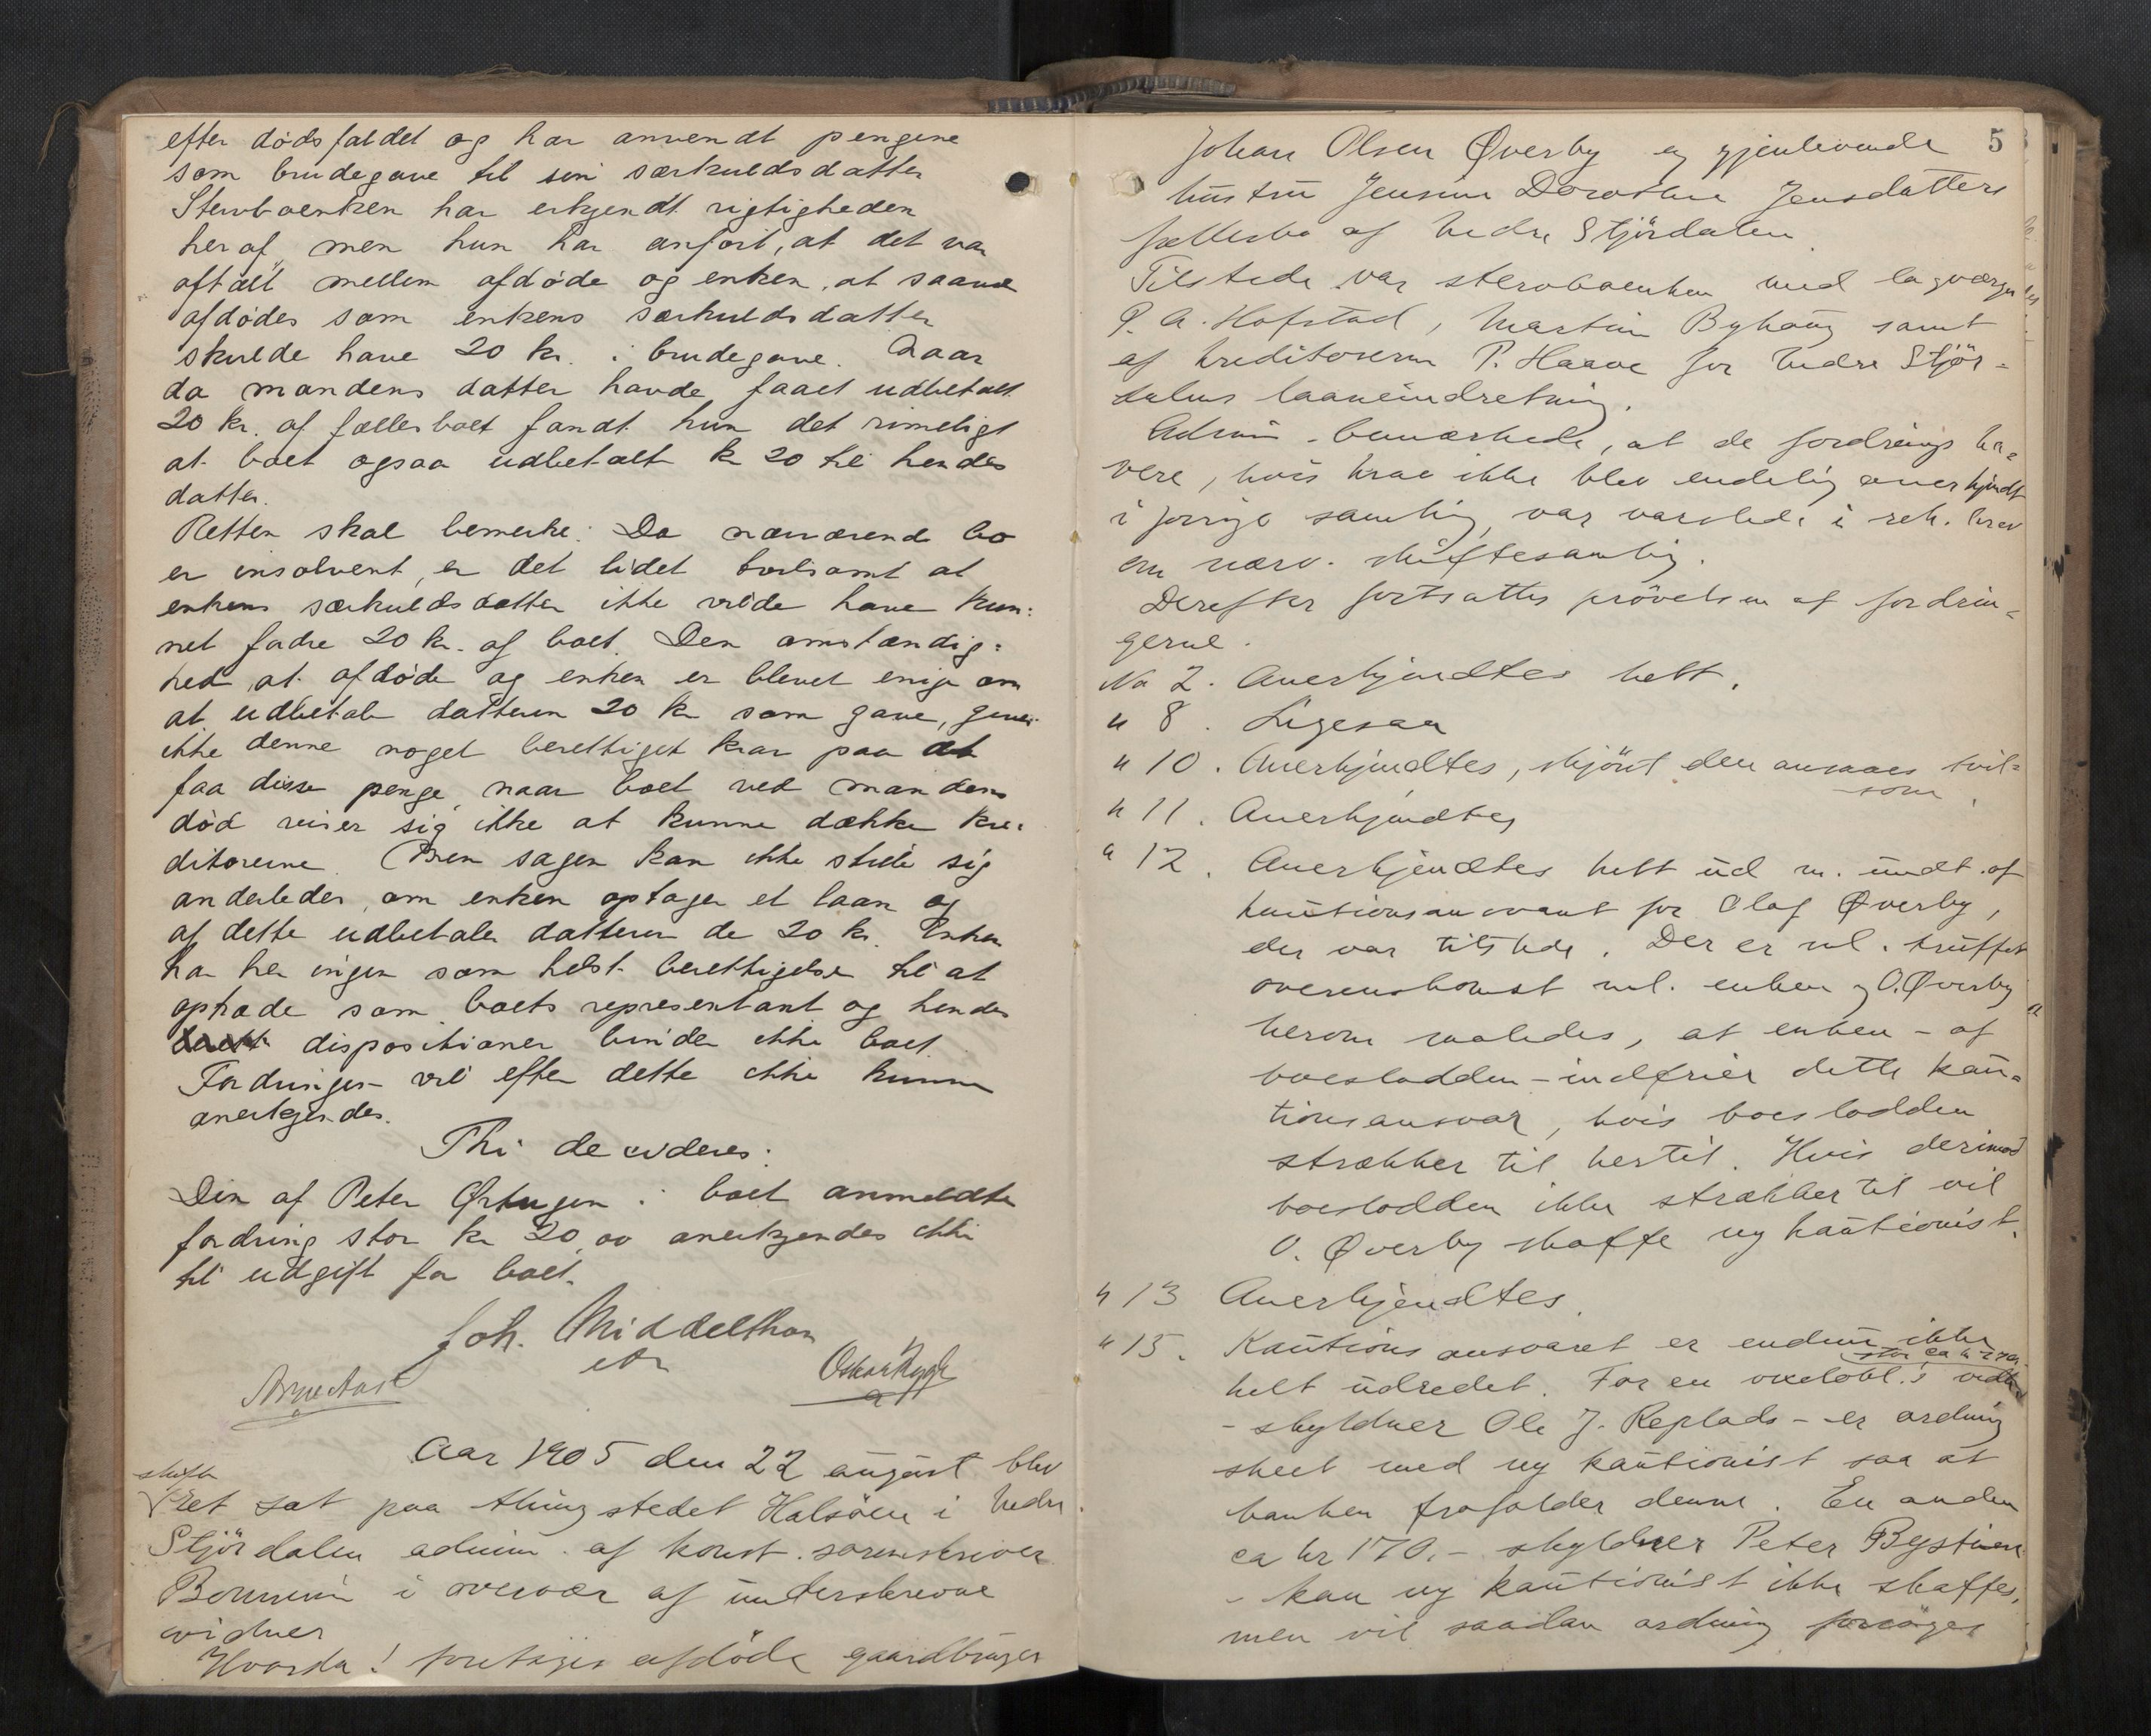 efter dødsfaldet og har anvendt pengene
som brudegave til sin særkuldsdatter
Stervboenken har erkjendt rigtigheden
heraf, men hun har anført, at det var
aftalt mellem afdøde og enken, at saavel
afdødes som enkens særkuldsdatter
skulde have 20 kr. i brudegave. Naar
da mandens datter havde faaet udbetalt
20 kr. af fællesboet fandt hun det rimeligt
at boet ogsaa udbetalt kr 20 til hendes
datter.
Retten skal bemerke: Da nærværende bo
er insolvent, er det lidet at
enkens særkuldsdatter ikke vilde have kun-
net fordre 20 kr. af boet. Den omstændig-
hed, at afdøde og enken er blevet enige om
at udbetale datteren 20 kr som gave, giver
ikke denne noget berettiget krav paa at
faa disse penge, naar boet ved mandens
død viser sig ikke at kunne dække kre-
ditorerne. Men sagen kan ikke stille sig
anderledes, om enken optager et laan og
af dette udbetaler datteren de 20 kr. Enken
har her ingen som helst berettigelse til at
optræde som boets representant og hendes
dispositioner binder ikke boet.
Fordringen vil efter dette ikke kunne
anerkjendes.
Thi decideres:
Den af Peter i boet anmeldte
fordring stor kr 20,00 anerkjendes ikke
til udgift for boet.
Joh. Middelthon
Oskar Rygh
Aar 1905 den 22 august blev
skifte
ret sat paa thingstedet Halsöen i Nedre
Stjördalen admin. af konst. sorenskriver
i overvær af underskrevne
vidner
Hvorda! foretages afdöde gaardbruger
5
Johan Olsen Øverby og gjenlevende
hustru Jensine Dorothea Jensdatters
fællesbo af Nedre Stjördalen.
Tilstede var stervboenken med lagværge
P. A. Hofstad, Martin Byhaug samt
af kreditorerne P. Haave for Nedre Stjör-
dalens laaneindretning.
Admin. bemærkede, at de fordringsha-
vere, hvis krav ikke blev endelig anerkjendt
i forrige samling, var varslede i rek. brev
om nærv. skiftesamling.
Derefter fortsattes prövelsen af fordrin-
gerne.
No 2. Anerkjendtes helt.
" 8. Ligesaa
" 10. Anerkjendtes, skjönt den ansaaes tvil-
som.
" 11. Anerkjendtes
" 12. Anerkjendtes helt ud m. undt. af
kautionsansvaret for Olaf Øverby,
der var tilstede. Der er ml. truffet
overenskomst ml. enken og O. Øverby
herom saaledes, at enken - af
boeslodden - indfrier dette kau-
tionsansvar, hvis boeslodden
strækker til hertil. Hvis derimod
boeslodden ikke strækker til vil
O. Øverby skaffe ny kautionist.
" 13 Anerkjendtes.
" 15. Kautionsansvaret er endnu ikke
helt udredet. For en vexelobl.s
- skyldner Ole J. Replads - er ordning
skeet med ny kautionist saa at
banken frafalder denne. En anden
ca kr 170.- skyldner Peter Bystinen
- kan ny kautionist ikke skaffes,
men vil saadan ordning forsöges